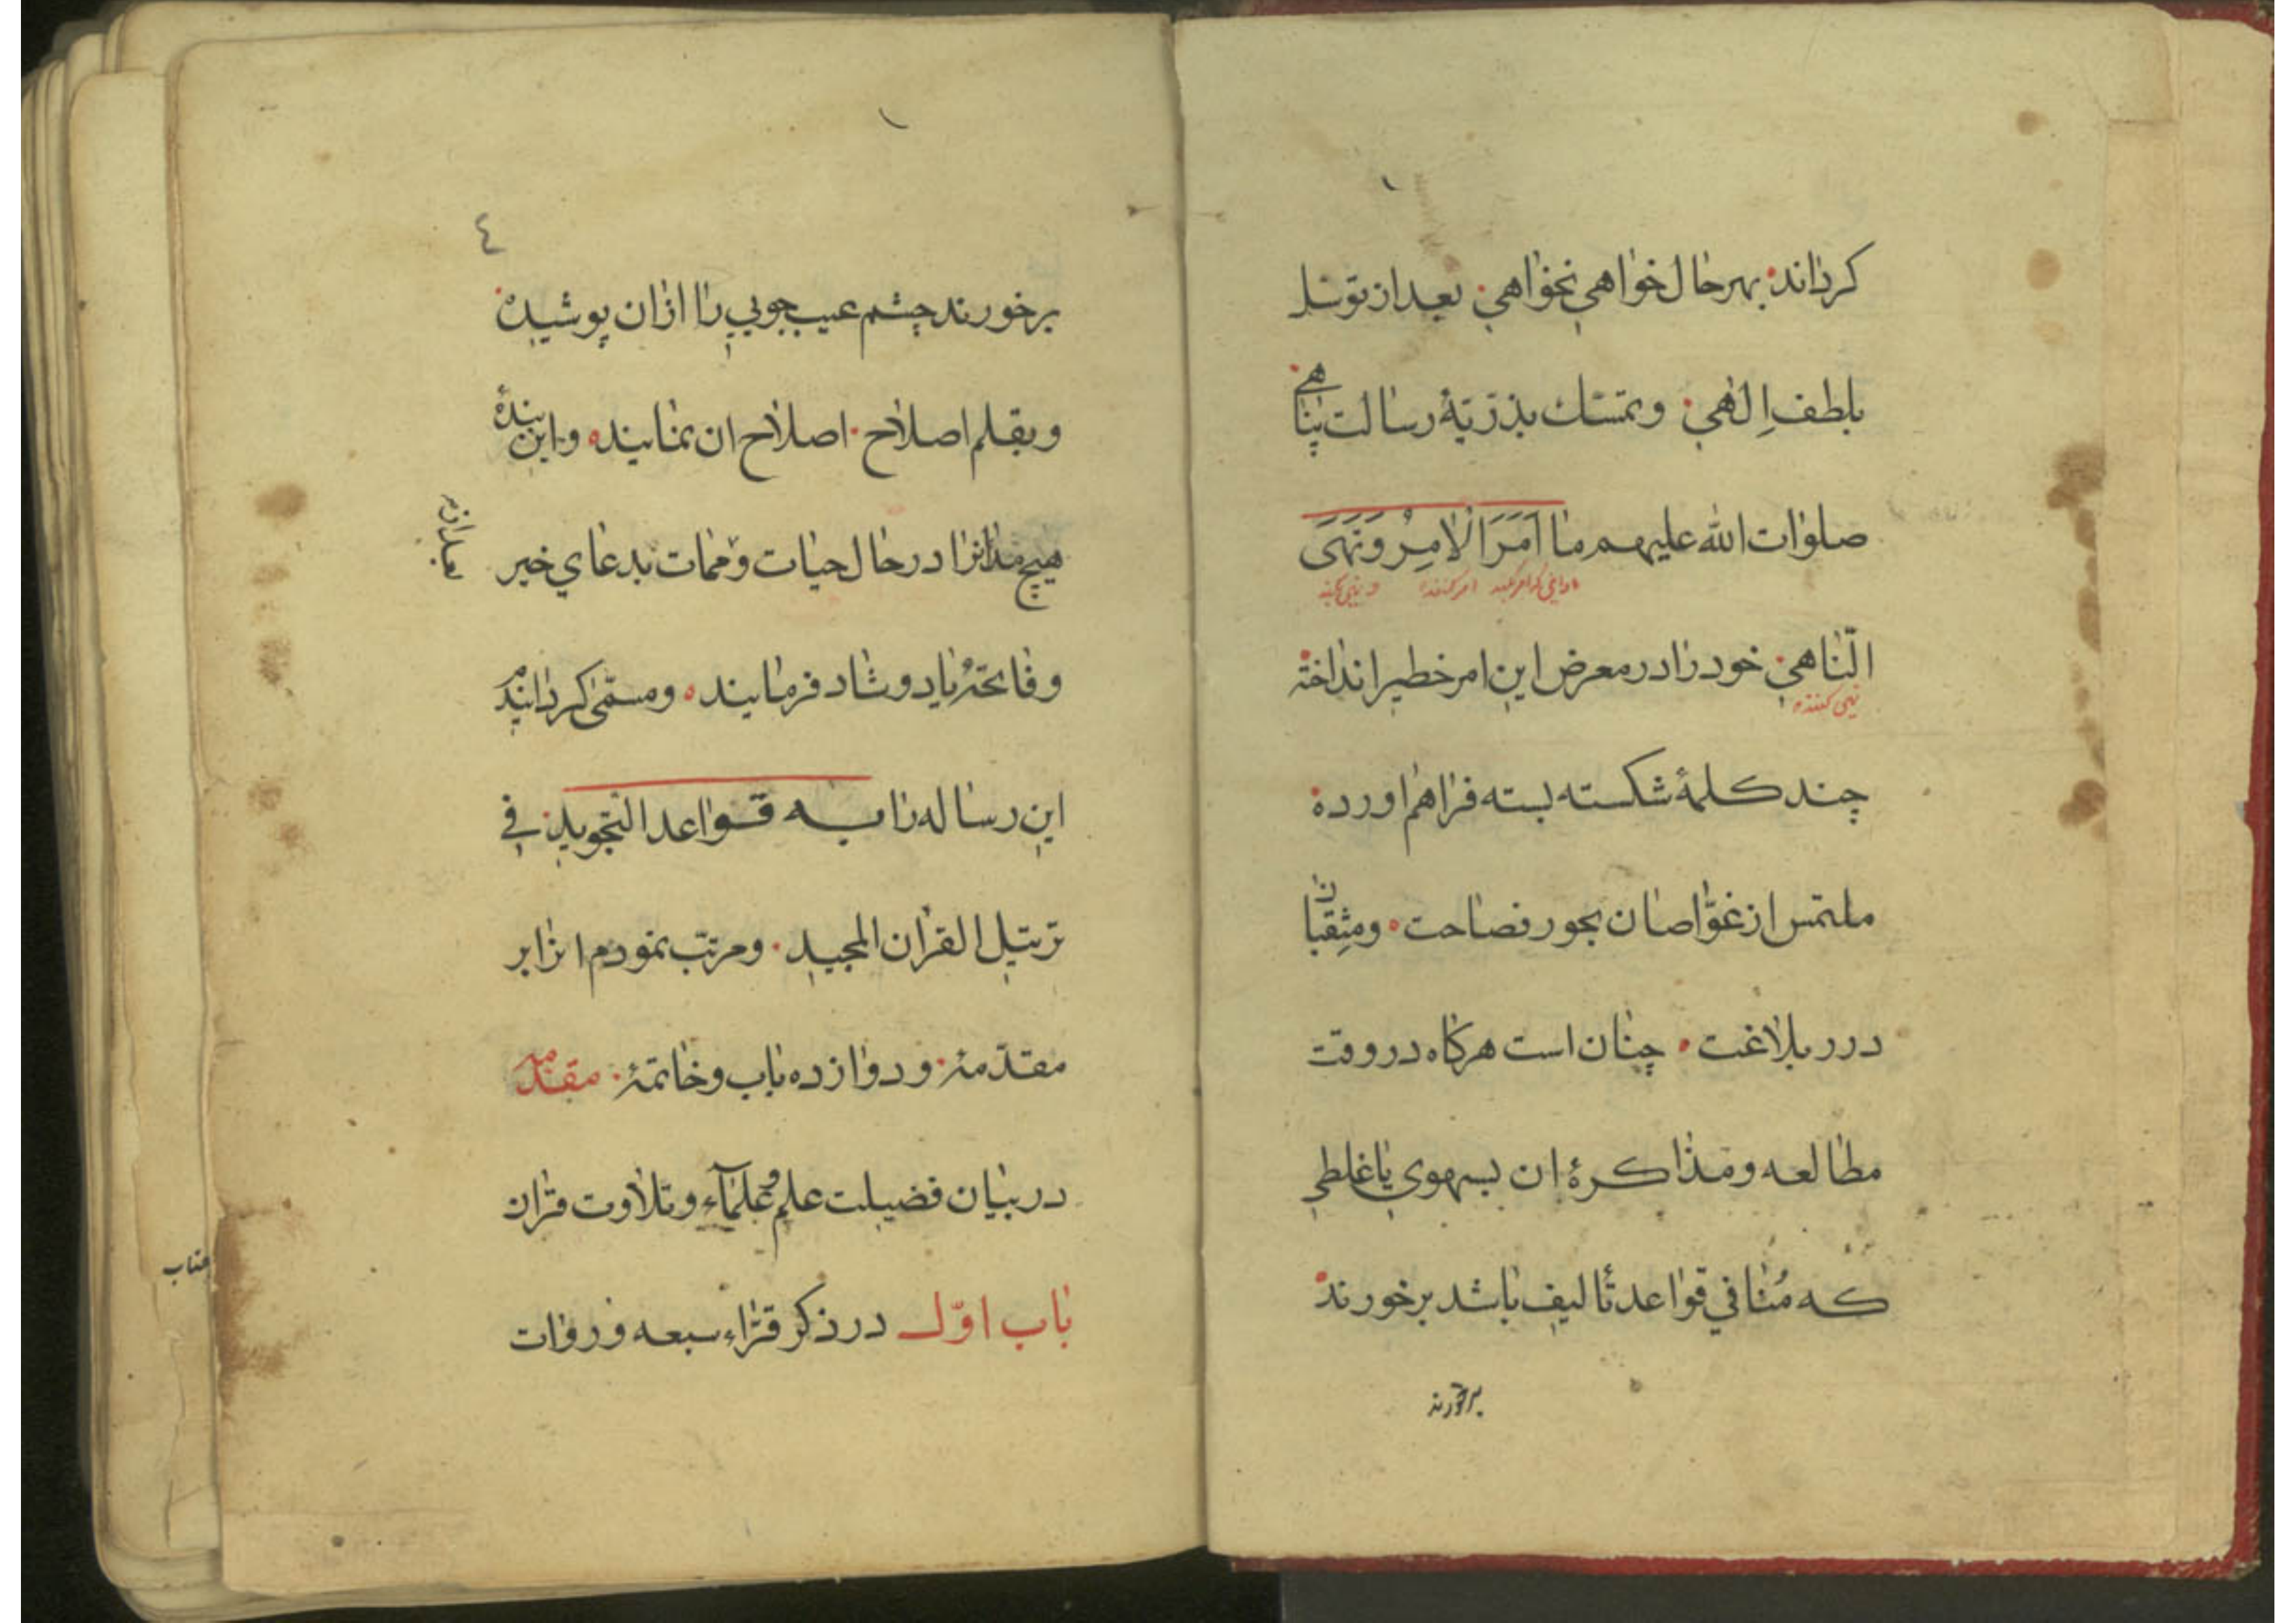 کرداند بهر حال خواهی نخواهی بعد از توسل
بلطف الهی و تمسّک بذرّیّهٔ رسالت پناهی
صلوات الله علیهم ما اَمَرَ الْاٰمِرُ وَنَهَی
امر کننده و نهی کند
النّاهی خود را در معرض این امر خطیر انداخته
نهی کننده
چند کلمهٔ شکسته بسته فراهم اورده
ملتمس از غوّاصان بحور فصاحت و مثقبان
درر بلاغت چنان است هرکاه در وقت
مطالعه و مذاکرهٔ ان بسهوی یا غلطی
که مُنافی قواعد تألیف باشد برخورند
برخورند
٤
برخورند چشم عیب جویی را ازان پوشیده
و بقلم اصلاح اصلاح ان نمایند و این بندهٔ
هیچ مدانرا در حال حیات و ممات بدعای خیر
و فاتحهٔ یاد و شاد فرمایند و مسمّی کردانیدم
این رساله را به قواعد التّجوید فی
ترتیل القران المجید و مرتّب نمودم انرا بر
مقدّمهٔ و دوازده باب و خاتمهٔ مقدّمه
در بیان فضیلت علم و علمآء و تلاوت قران
باب اوّل در ذکر قرّاء سبعه و روات